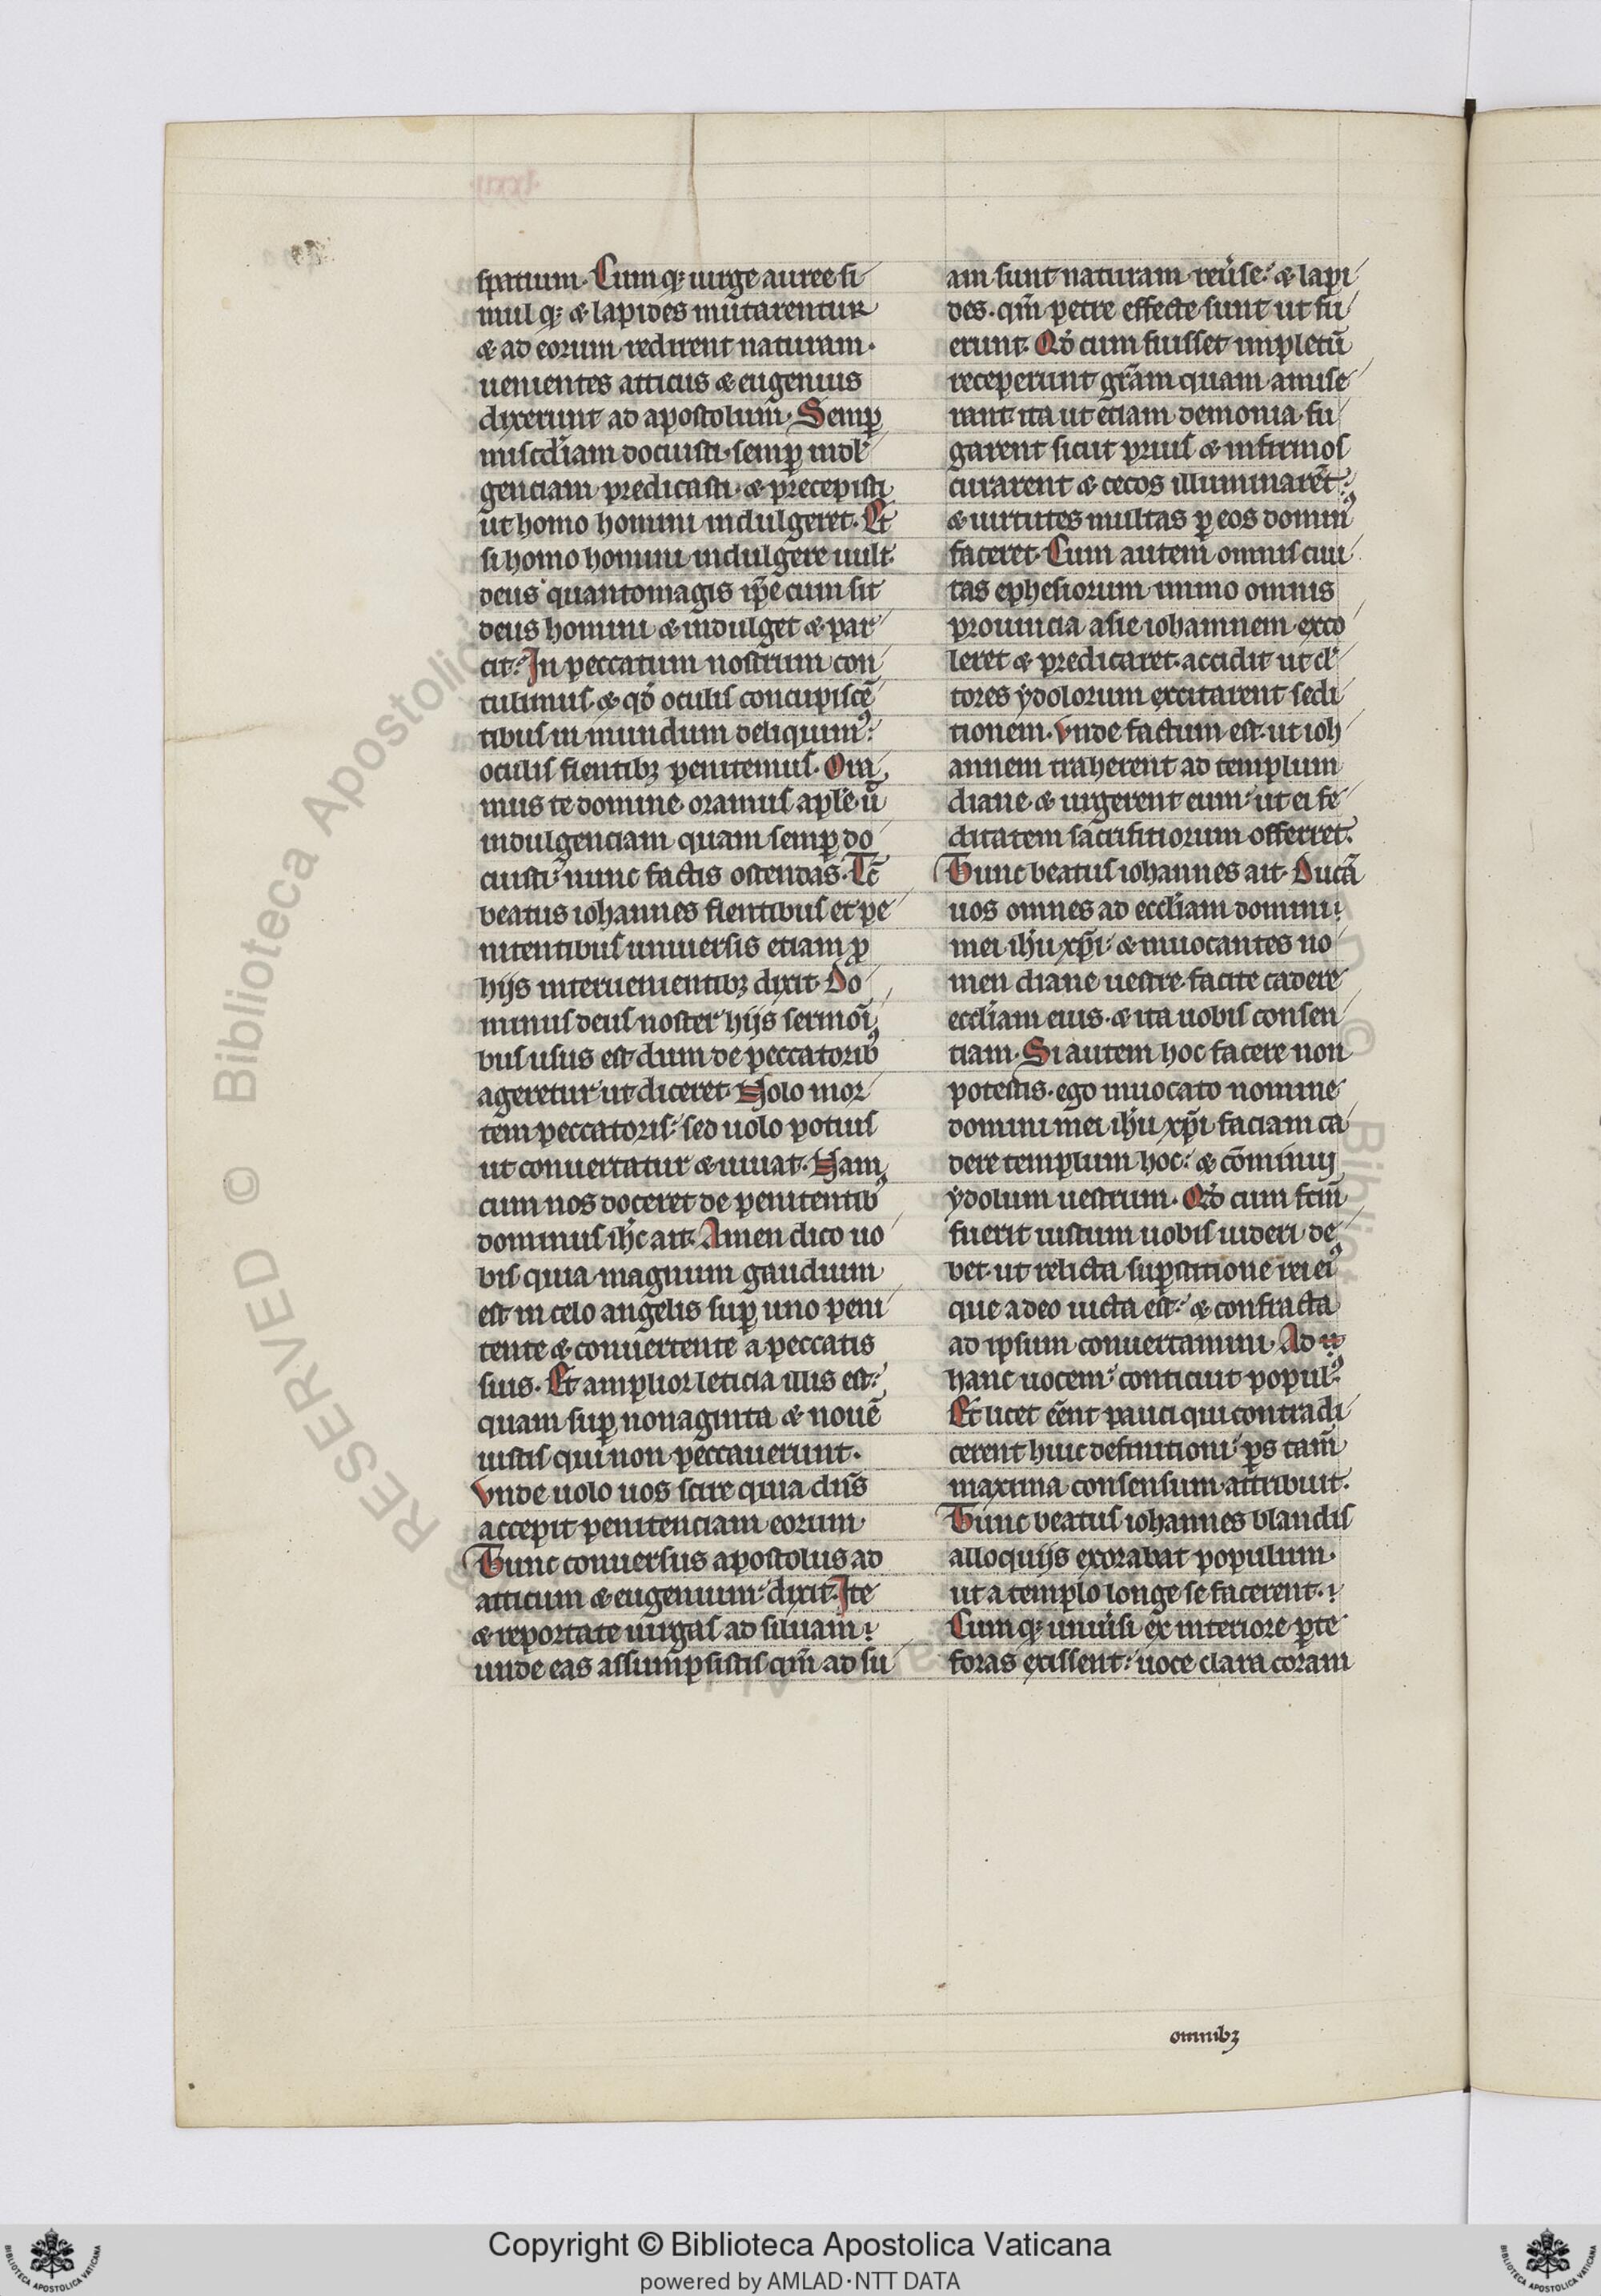 spatium. Cumqꝫ uirge auree si
mul qꝫ & lapides mutarentur
& ad eorum redirent naturam.
uenientes atticus & eugenius
dixerunt ad apostolum. Semꝑ
misc̄diam docuisti. semꝑ indl̄
genciam predicasti. & precepisti
ut homo homini indulgeret. Et
si homo homini indulgere uult.
deus quantomagis ip̄e cum sit
deus homini & indulget & par
cit. In peccatum nostrum con
tulimus. & qd̄ oculis concupiscē
tibus in mundum deliquimꝰ.
oculis flentibꝫ penitemus. Ora
mus te domine. oramus aplē. ut̄
indulgenciam quam semꝑ do
cuisti. nunc factis ostendas. Tc̄
beatus iohannes flentibus et pe
nitentibus uniuersis etiam ꝓ
hijs interuenientibꝫ dixit. Do
minus deus noster hijs sermōi
bus usus est dum de peccatoribꝰ
ageretur ut diceret. Nolo mor
tem peccatoris. sed uolo potius
ut conuertatur & uiuat. Nam
cum nos doceret de penitentibꝰ
dominus ihc̄ ait. Amen dico uo
bis quia magnum gaudium
est in celo angelis suꝑ uno peni
tente & conuertente a peccatis
suis. Et amplior leticia illis est.
quam suꝑ nonaginta & nouē
iustis qui non peccauerunt.
Vnde uolo uos scire quia dn̄s
accepit penitenciam eorum
Tunc conuersus apostolus ad
atticum & eugenium dixit. Ite
& reportate uirgas ad siluam.
unde eas assumpsistis qm̄ ad su
am sunt naturam reūse. & lapi
des. qm̄ petre effecte sunt ut fu
erunt. Qd̄ cum fuisset impletū
receperunt grām quam amise
rant. ita ut etiam demonia fu
garent sicut prius & infirmos
curarent & cecos illuminarēt.
& uirtutes multas ꝑ eos dominꝰ
faceret. Cum autem omnis ciui
tas ephesiorum immo omnis
prouincia asie iohannem exco
leret & predicaret. accidit ut cl̄
tores ydolorum excitarent sedi
tionem. Vnde factum est. ut ioh
annem traherent ad templum
diane & urgerent eum ut ei fe
ditatem sacrifitiorum offerret.
Tunc beatus iohannes ait. Ducā
uos omnes ad eccl̄iam domini
mei ihū xp̄i. & inuocantes no
men diane uestre facite cadere
eccl̄iam eius. & ita uobis consen
tiam. Si autem hoc facere non
potestis. ego inuocato nomine
domini mei ihū xp̄i faciam ca
dere templum hoc. & cōminuj
ydolum uestrum. Qd̄ cum fcm̄
fuerit iustum uobis uideri de
bet. ut relicta suꝑstitione rei eiꝰ
que adeo uicta est. & confracta
ad ipsum conuertamini. Ad
hanc uocem conticuit populꝰ.
Et licet eēnt pauci qui contradi
cerent huic definitioni. ꝑs tam̄
maxima consensum attribuit.
Tunc beatus iohannes blandis
alloquijs exorabat populum
ut a templo longe se facerent.
Cumqꝫ uniūsi ex interiore ꝑte
foras exissent. uoce clara coram
omnibꝫ
RESERVED © Biblioteca Apostolic
Copyright © Biblioteca Apostolica Vaticana
powered by AMLAD·NTT DATA